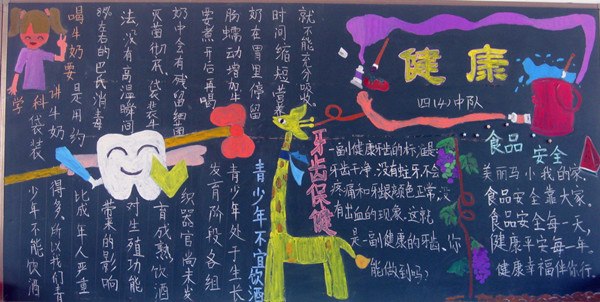 健康
四(4)中队
喝牛奶要讲科学
袋装
牛奶
是用约
85%左右的巴氏消毒
法没有高温瞬间
灭菌彻底袋装牛
奶中含有残留细菌
要煮开后再喝
肠蠕动增加牛
奶在胃里停留
时间缩短营养
就不能充分吸
青少年不宜饮酒
青少年处于生长
发育阶段各组
织器官尚未发
育成熟饮酒
对生殖功能
带来的影响
比成年人严重
得多,所以我们青
少年不能饮酒
牙齿保健
一副健康牙齿的标准是
牙齿干净,没有蛀牙不会
疼痛和牙龈颜色正常,没
有出血的现象,这就
是一副健康的牙齿。你
能做到吗?
食品安全
美丽马小我的家,
食品安全靠大家,
食品安全每一天,
健康平安每一年
健康幸福伴你行。